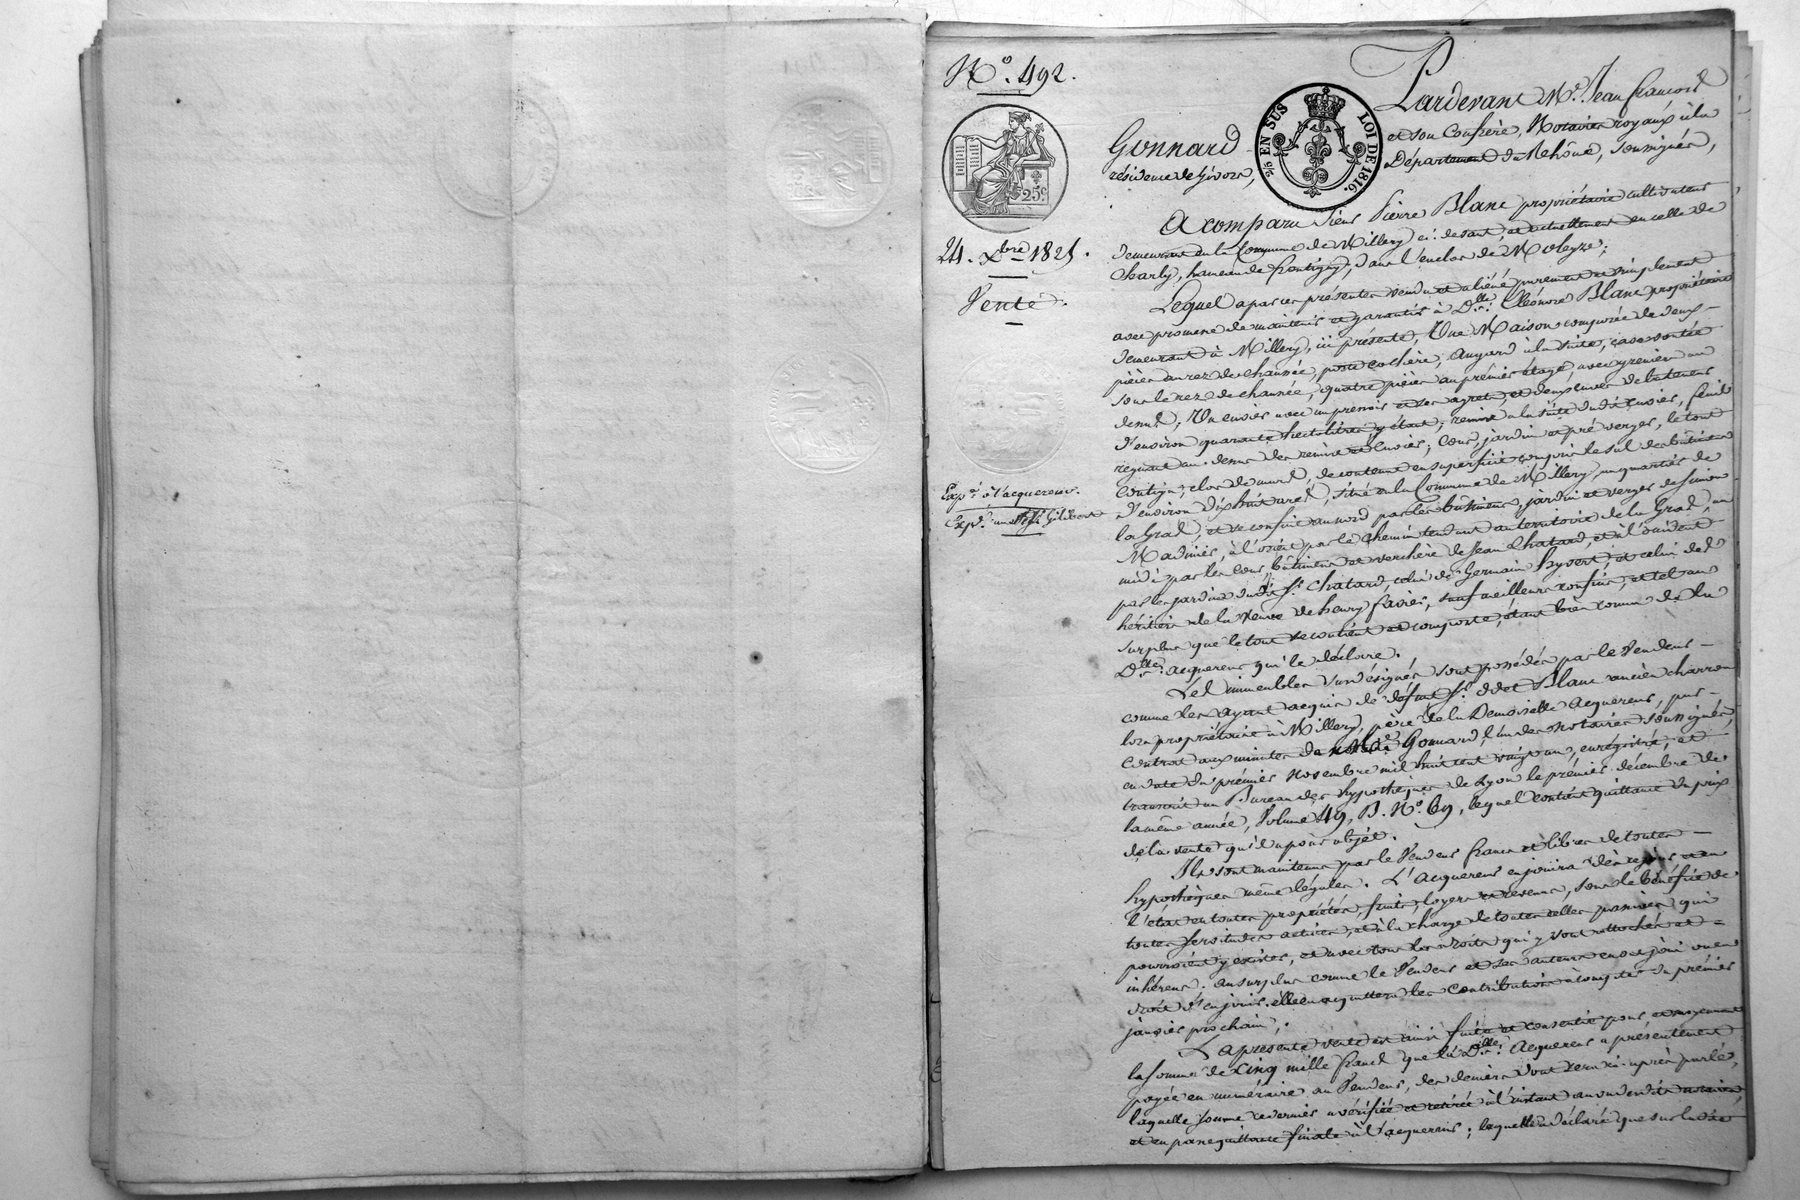 N.° 492.
EN SUS LOI DE 1816.
25c.
24. Xbre 1825.
Vente.
Expon à l'acquereur.
Pardevant Me. Jean françois
Gonnard et son Confrère, Notaires royaux à la
résidence de Givors, Département du Rhône, soussignés,
A comparu Sieur Pierre Blanc propriétaire cultivateur
demeurant en la Commune de Millery ci-devant, et actuellement en celle de
Charly, hameau de frontigny, dans l'enclos de Moleyze;
Lequel a par ces présentes vendu et aliéné purement et simplement
avec promesse de maintenir et garantir à Dlle. Eléonore Blanc propriétaire
demeurant à Millery, ici présente, Une Maison composée de deux
pièces au rez de chaussée, porte cochère, angard à la suite, cave voutée
sous le rez de chaussée, quatre pièces au premier étage, avec grenier au
dessus; Un cuvier avec un pressoir et ses agrets, et deux cuves de la teneur
d'environ quarante hectolitres y étant; remise à la suite dudit cuvier, fenil
régnant au-dessus des remise et Cuvier; Cour, jardin et pré verger, le tout
contigu, clos de murs, de contenue en superficie compris le sol des bâtiments
d'environ dix huit ares, situé en la Commune de Millery, au quartier de
la Grad, et se confine au nord par les bâtiments, jardin et verger de Simon
Madinier, à l'orient par le chemin tendant au territoire de la Grad, au
midi par les Cour, bâtiment et verchère de Jean Chatard, et à l'occident
par les jardins dudit Sr. Chatard, celui de Germain hyvert, et celui des
héritiers de la Veuve de henry favier, sauf meilleurs confins, et tel au
surplus que le tout se contient et comporte, étant bien connu de la
Dlle. acquereur qui le déclare.
Les immeubles sus désignés sont possédés par le Vendeur
comme les ayant acquis de défunt Sr. Blanc ancien charron
propriétaire à Millery, père de la Demoiselle Acquereur, par
contrat aux minutes de Me. Gonnard, l'un des notaires soussignés,
en date du premier novembre mil huit cent vingt un, enregistré, et
transcrit au Bureau des hypothèques de Lyon le premier décembre de
la même année, Volume 49, B. N.° 69, lequel contient quittance du prix
de la vente qu'il a pour objet.
Ils sont maintenus par le Vendeur francs et libres de toutes
hypothèques même légales. L'Acquereur en jouira dès aujourd'hui en
l'état en toutes propriétés, fruits, loyers et revenus, sous le bénéfice de
toutes servitudes actives, et à la charge de toutes celles passives qui
pourroient y exister, et avec tous les droits qui y sont attachés et
inhérens. au surplus comme le Vendeur et ses auteurs en ont joui ou eu
droit d'en jouir. elle en acquittera les contributions à compter du premier
janvier prochain;
La présente vente est ainsi faite et consentie pour et moyennant
la somme de Cinq mille francs que la Dlle. Acquereur a présentement
payée en numéraire au Vendeur, des deniers dont sera ci-après parlé,
laquelle somme ce dernier a vérifiée et retirée à l'instant au vu desdits notaires,
et en passe quittance finale à l'acquereur; laquelle a déclaré que sur ladite